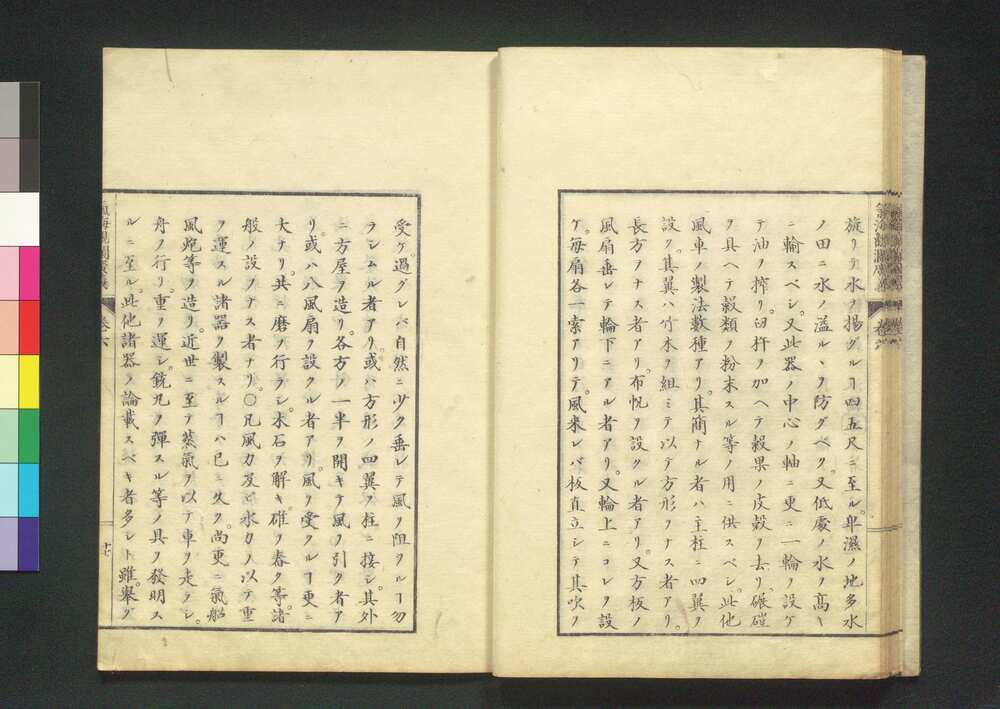 旋リテ水ヲ揚グルヿ四五尺ニ至ル。卑濕ノ地多水
ノ田ニ水ノ溢ルヽヲ防グベク。又低處ノ水ヲ高キ
ニ輸スベシ。又此器ノ中心ノ軸ニ更ニ一輪ヲ設ケ
テ油ヲ搾リ。臼杵ヲ加ヘテ穀果ノ皮殼ヲ去リ。碾磑
ヲ具ヘテ穀類ヲ粉末スル等ノ用ニ供スベシ。此他
風車ノ製法數種アリ。其商ナル者ハ主柱ニ四翼ヲ
設ク。其翼ハ竹木ヲ組ミテ以テ方形ヲナス者アリ。
長方ヲナス者アリ。布帆ヲ設クル者アリ。又方板ノ
風扇垂レテ輪下ニアル者アリ。又輪上ニコレヲ設
ケ。毎扇各一索アリテ。風來レバ板直立シテ其吹ヲ
受ケ。過グレバ自然ニ少ク垂レテ風ヲ阻クルヿ勿
ラシムル者アリ。或ハ方形ノ四翼ヲ柱ニ接シ。其外
ニ方屋ヲ造リ。各方ノ一半ヲ開キテ風ヲ引ク者ア
リ。或ハ八風扇ヲ設クル者アリ。風ヲ受クルヿ更ニ
大ナリ。共ニ磨ヲ行ラシ。水石ヲ解キ。碓ヲ舂ク等。諸
般ノ設ヲナス者ナリ。〇凡風力及ビ水力ヲ以テ重
ヲ運スル諸器ヲ製スルヿハ已ニ久ク。尚更ニ氣船
風炮等ヲ造リ。近世ニ至テ蒸氣ヲ以テ車ヲ走ラシ。
舟ヲ行リ。重ヲ運シ。銃丸ヲ彈スル等ノ具ヲ發明ス
ルニ至ル。此他諸器ノ論載スベキ者多シト雖。擧グ
卷六